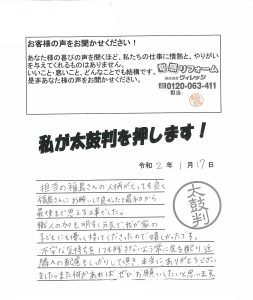 お客様の声をお聞かせください！
あなた様の喜びの声を聞くほど、私たちの仕事に情熱と、やりがい
を与えてくれるものはありません。
いいこと・悪いこと、どんなことでも結構です。
是非あなた様の声をお聞かせください。
リフォーム
株式会社ヴィレッジ
0120-063-411
担当：
私が太鼓判を押します！
令和 2 年 1月17日
担当の福島さんの人柄がとても良く
福島さんにお願いして良かったと最初から
最後まで思える工事でした。
職人の方も明るく元気で我が家の
子どもにも優しく接してくださったので嬉しかったです。
不安な気持ちを1つも残さないよう常に気を配り、近
隣への配慮もしっかりして頂き本当にありがとうござい
ました。また何かあれば、ぜひお願いしたいと思います。
太鼓判